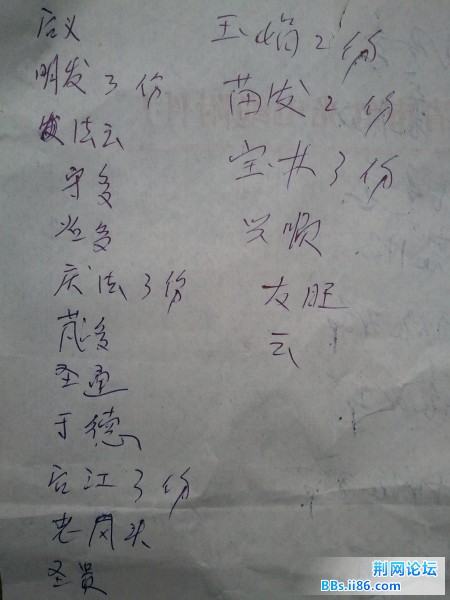 启义
明发3份
法云
守多
必多
庆法3份
茂多
圣通
于德
启江3份
老岗头
圣贵
玉娟2份
苗发2份
宝林3份
兴顺
友旺
云
荆网论坛
BBs.ii86.com